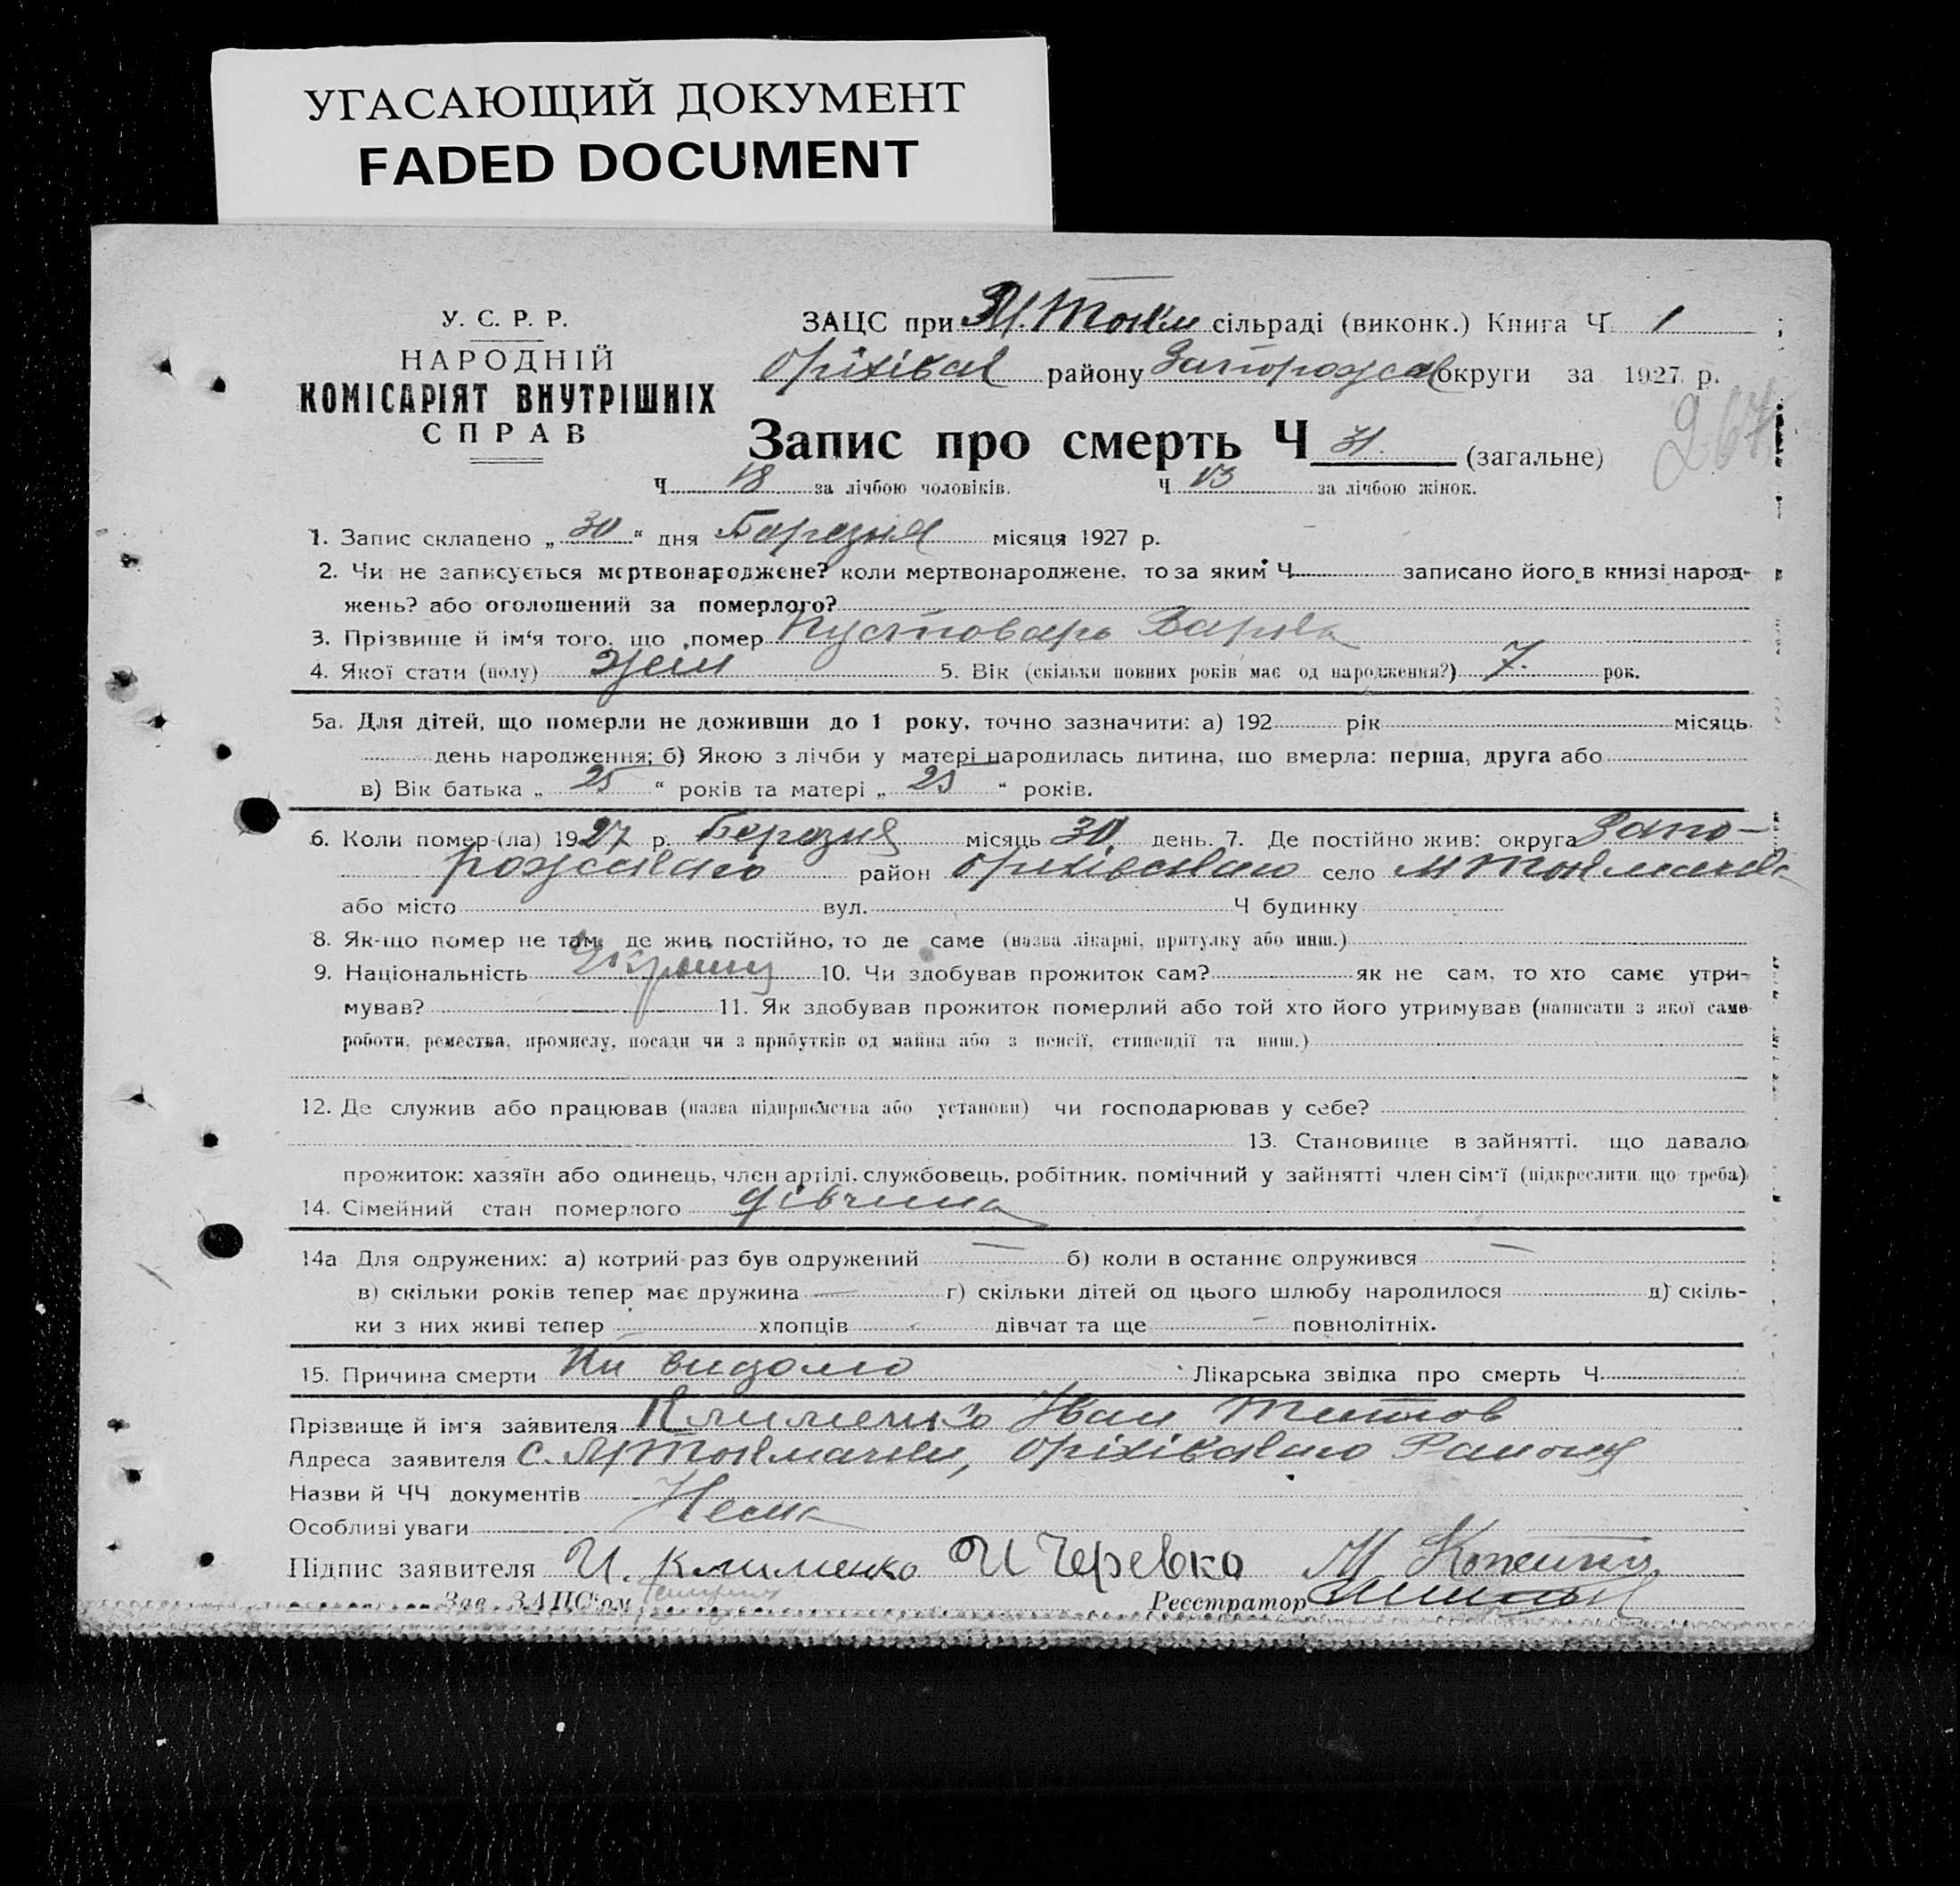 УГАСАЮЩИЙ ДОКУМЕНТ
FADED DOCUMENT
У. С. Р. Р.
НАРОДНІЙ
КОМІСАРІЯТ ВНУТРІШНІХ
СПРАВ
ЗАЦС при М. Токм сільраді (виконк.) Книга Ч 1
Оріхівськ району Запорожськ округи за 1927 р.
267
Запис про смерть Ч 31. (загальне)
Ч 18 за лічбою чоловіків. Ч 13 за лічбою жінок.
1. Запис складено „ 30 “ дня Березня місяця 1927 р.
2. Чи не записується мертвонароджене? коли мертвонароджене, то за яким Ч записано його в книзі народ-
жень? або оголошений за померлого?
3. Прізвище й ім'я того, що помер Пустоварь
4. Якої стати (полу) жен 5. Вік (скільки повних років має од народження?) 7. рок.
5а. Для дітей, що померли не доживши до 1 року, точно зазначити: а) 192 рік місяць
день народження; б) Якою з лічби у матері народилась дитина, що вмерла: перша, друга або
в) Вік батька „ 25 “ років та матері „ 25 “ років.
6. Коли помер (ла) 1927 р. Березня місяць 30 день. 7. Де постійно жив: округа Запо-
рожського район Оріхівського село М Токмачка
або місто вул. Ч будинку
8. Як-що помер не там, де жив постійно, то де саме (назва лікарні, притулку або инш.)
9. Національність 10. Чи здобував прожиток сам? як не сам, то хто саме утри-
мував? 11. Як здобував прожиток померлий або той хто його утримував (написати з якої саме
роботи, ремества, промислу, посади чи з прибутків од майна або з пенсії, стипендії та инш.)
12. Де служив або працював (назва підприємства або установи) чи господарював у себе?
13. Становище в зайнятті, що давало
прожиток: хазяїн або одинець, член артілі, службовець, робітник, помічний у зайнятті член сім'ї (підкреслити що треба)
14. Сімейний стан померлого дівчина
14а Для одружених: а) котрий раз був одружений — б) коли в останнє одружився —
в) скільки років тепер має дружина — г) скільки дітей од цього шлюбу народилося д) скіль-
ки з них живі тепер хлопців дівчат та ще — повнолітніх.
15. Причина смерти Ни видомо Лікарська звідка про смерть Ч
Прізвище й ім'я заявителя Клименко Іван Титов
Адреса заявителя с. М Токмачки, Оріхівського Району
Назви й ЧЧ документів Нема
Особливі уваги
Підпис заявителя И. Клименко И Черевко М
Зав. ЗАЦС'ом Реєстратор